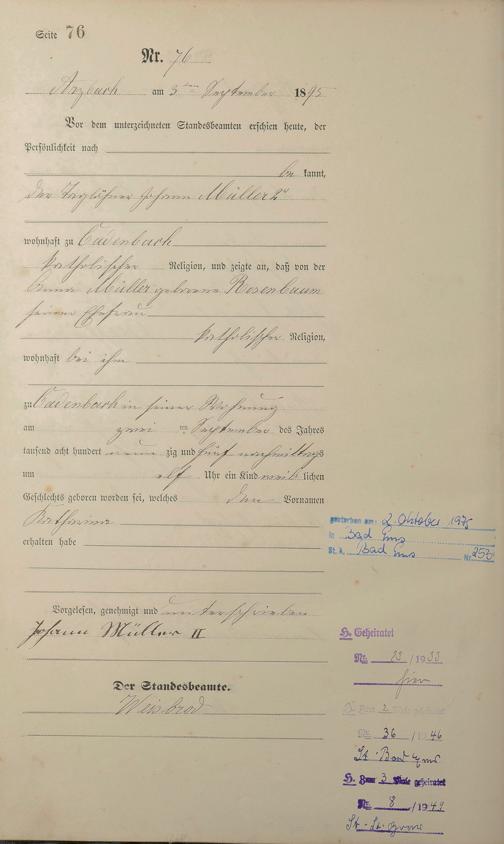 Seite 76
Nr. 76
Arzbach am 3ten September 1895
Vor dem unterzeichneten Standesbeamten erschien heute, der
Persönlichkeit nach
be kannt,
der Taglöhner Johann Müller 2r
wohnhaft zu Cadenbach
katholischer Religion, und zeigte an, daß von der
Anna Müller geborene Rosenbaum
seiner Ehefrau
katholischer Religion,
wohnhaft bei ihm
zu Cadenbach in seiner Wohnung
am zwei ten September des Jahres
tausend acht hundert neun zig und fünf nachmittags
um elf Uhr ein Kind weib lichen
Geschlechts geboren worden sei, welches den Vornamen
Katharina
erhalten habe
Vorgelesen, genehmigt und unterschrieben
Johann Müller II
Der Standesbeamte.
Weisbrod
gestorben am: 2. Oktober 1975
in Bad Ems
St. A. Bad Ems Nr. 253
H. Geheiratet
Nr. 13/1933
hier
H. Zum 2. Male geheiratet
Nr. 36/1946
St. Bad Ems
H. Zum 3 Male geheiratet
Nr. 8/1949